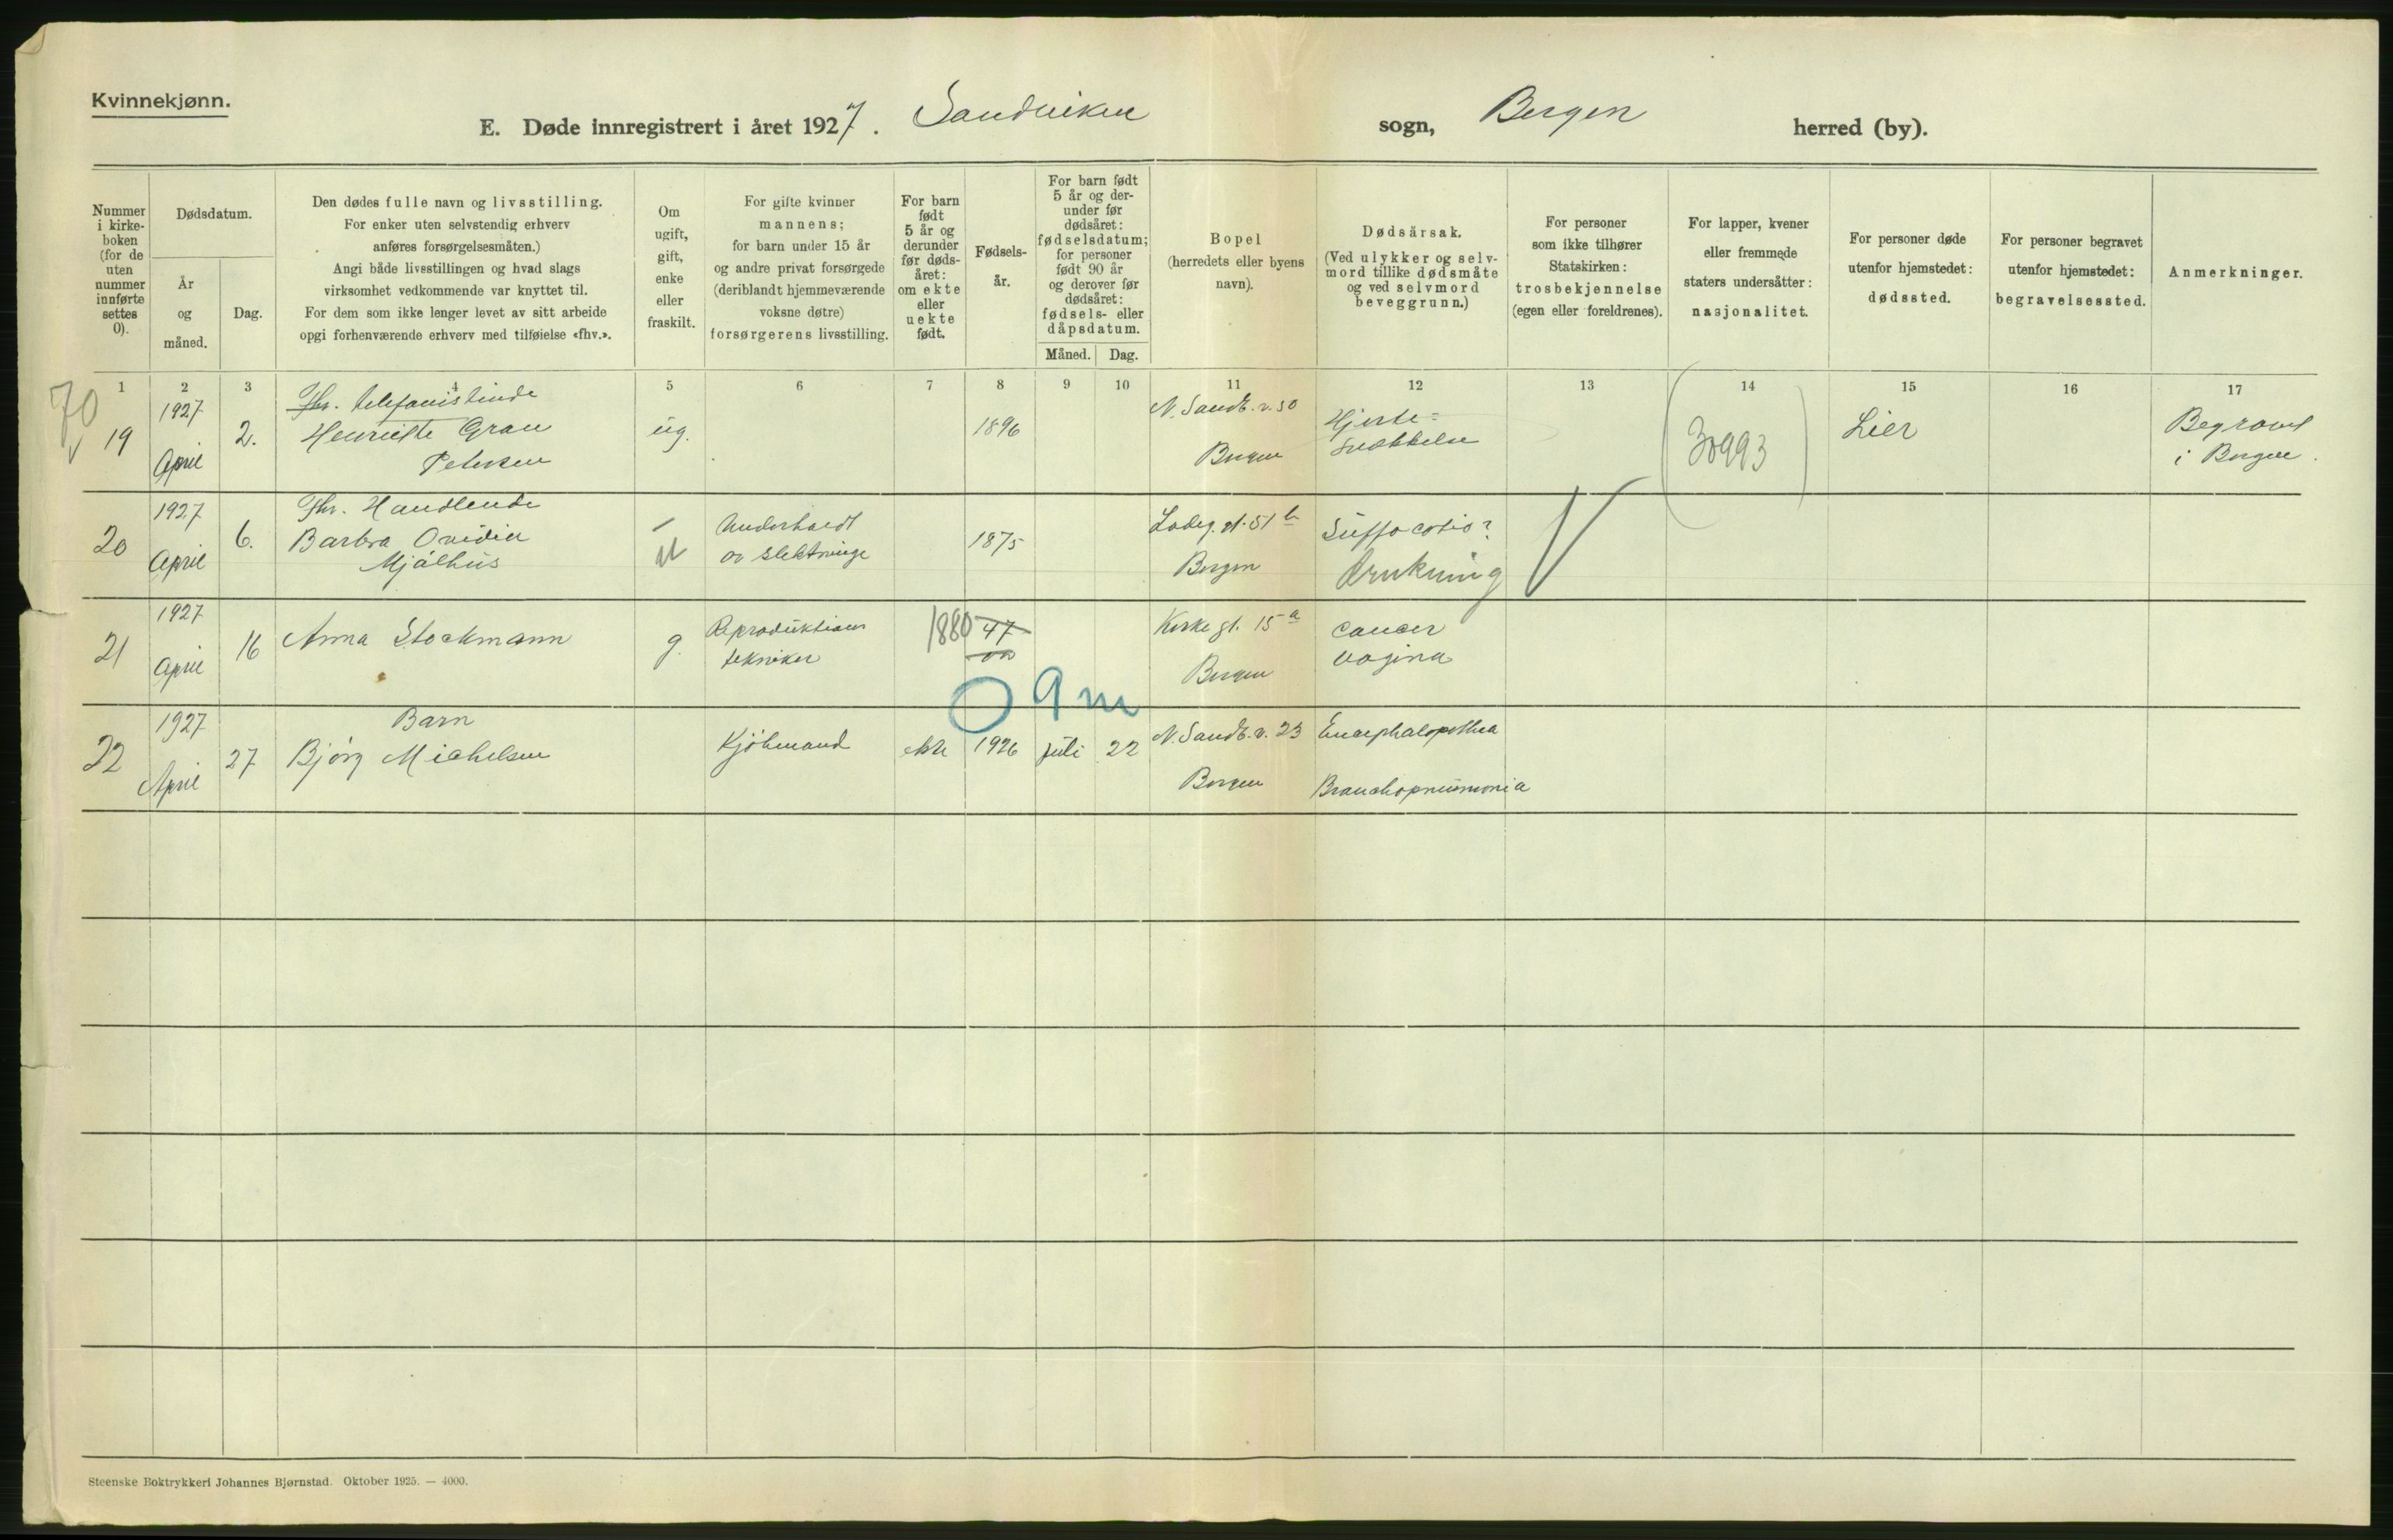 Kvinnekjønn.
E. Døde innregistrert i året 1927. Sandviken sogn, Bergen herred (by).
Nummer
i kirke-
boken
(for de
uten
nummer
innførte
settes
0).
Dødsdatum.
År
og
måned.
Dag.
Den dødes fulle navn og livsstilling.
For enker uten selvstendig erhverv
anføres forsørgelsesmåten.)
Angi både livsstillingen og hvad slags
virksomhet vedkommende var knyttet til.
For dem som ikke lenger levet av sitt arbeide
opgi forhenværende erhverv med tilføielse «fhv.».
Om
ugift,
gift,
enke
eller
fraskilt.
For gifte kvinner
mannens;
for barn under 15 år
og andre privat forsørgede
(deriblandt hjemmeværende
voksne døtre)
forsørgerens livsstilling.
For barn
født
5 år og
derunder
før døds-
året:
om ekte
eller
uekte
født.
Fødsels-
år.
For barn født
5 år og der-
under før
dødsåret:
fødselsdatum;
for personer
født 90 år
og derover før
dødsåret:
fødsels- eller
dåpsdatum.
Måned. Dag.
Bopel
(herredets eller byens
navn).
Dødsårsak.
(Ved ulykker og selv-
mord tillike dødsmåte
og ved selvmord
beveggrunn.)
For personer
som ikke tilhører
Statskirken:
trosbekjennelse
(egen eller foreldrenes).
For lapper, kvener
eller fremmede
staters undersåtter:
nasjonalitet.
For personer døde
utenfor hjemstedet:
dødssted.
For personer begravet
utenfor hjemstedet:
begravelsessted.
Anmerkninger.
1 2 3 4 5 6 7 8 9 10 11 12 13 14 15 16 17
70
19
1927
April
2.
Fhv. telefonistinde
Henriette Gran
Petersen
ug.
1896
N. Sandv. v. 50
Bergen
Hjerte-
svækkelse
(30993)
Lier
Begravet
i Bergen.
20
1927
April
6.
Fhv. Handlende
Barbra Ovidia
Mjålhus
Underholdt
av slektninge
1875
Ladeg. gt. 51 b
Bergen
Suffocatio?
drukning
21
1927
April
16
Anna Stockmann
g.
Reproduktions
tekniker
1880
47
Kirke gt. 15 a
Bergen
Cancer
vagina
0 9 m
22
1927
April
27
Barn
Bjørg Michelsen
Kjöbmand
ekte
1926
juli
22
N. Sandv. v. 23
Bergen
Encephalopathia
Bronchopneumonia
Steenske Boktrykkeri Johannes Bjørnstad. Oktober 1925. — 4000.